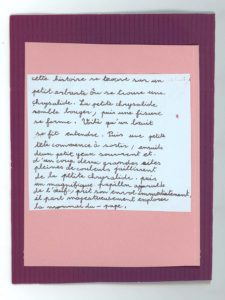 cette histoire se trouve sur un
petit arbuste où se trouve une
chrysalide. La petite chrysalide
semble bouger, puis une fissure
se forme. Voilà qu'un bruit
se fit entendre. Puis une petite
tête commence à sortir, ensuite
deux petit yeux s'ouvrent et
d'un coup deux grandes ailes
pleines de couleurs jaillirent
de la petite chrysalide. puis
un magnifique papillon apparut
de l'œuf, prit son envol immédiatement,
il part majestueusement explorer
la